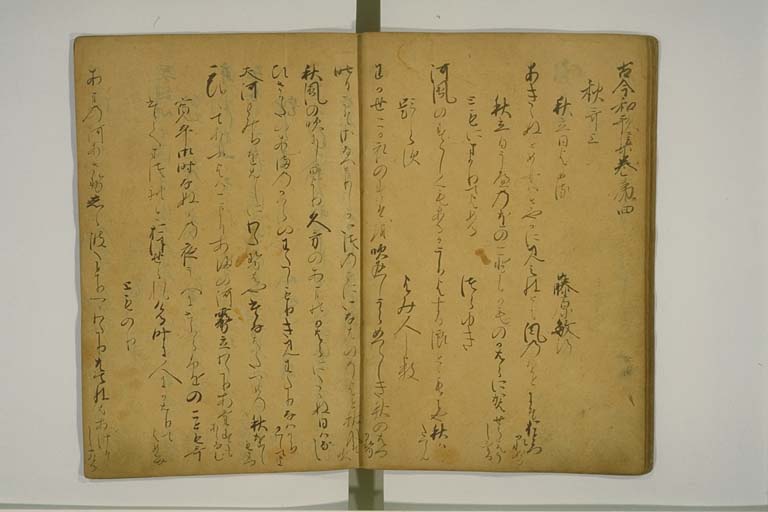 古今和歌集巻第四
秋哥上
秋立日よめる
藤原敏行
あききぬとめにはさやかに見えねとも風のをとにそおとろかれぬる
秋立日うへのをのこともかものかはらにかはせうえうしける
ともにまかりてよめる
つらゆき
河風のすゝしくもあるかうちよする浪とともにや秋はたつらん
題しらす
よみ人しらす
わかせこか衣のすそを吹返しうらめつらしき秋のはつ風
昨日こそさなへとりしかいつのまにいなはそよきて秋風の吹
秋風の吹にし日より久方のあまのかはらにたゝぬ日はなし
ひさかたのあまのかはらのわたしもりきみわたりなはかちかくしてよ
天河もみちをはしにわたせはやたなはたつめの秋をしもまつ
こひ〳〵てあふ夜はこよひあまの河霧立わたりあけすもあらなむ
寛平御時なぬかの夜うへにさふらふをのことも哥
たてまつれとおほせられける時に人にかはりてよめる
とものり
あまの河あさ瀬しら波たとりつゝわたりはてねはあけそしにける